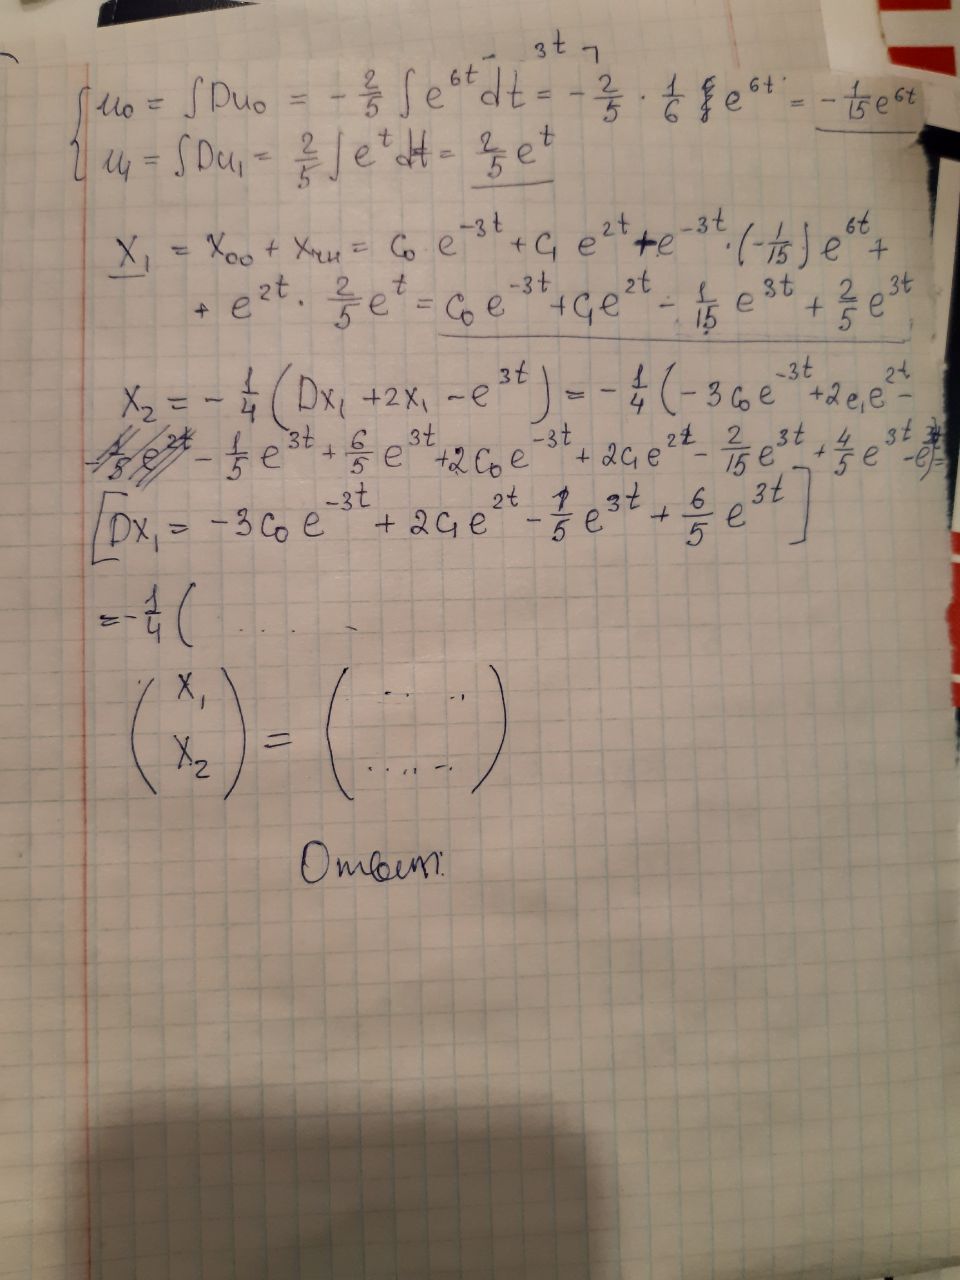 3t
u₀ = ∫Du₀ = -2/5 ∫e^{6t} dt = -2/5 · 1/6 e^{6t} = -1/15 e^{6t}
u₁ = ∫Du₁ = 2/5 ∫e^t dt = 2/5 e^t
X₁ = X₀₀ + Xчн = C₀ e^{-3t} + C₁ e^{2t} + e^{-3t} · (-1/15) e^{6t} +
+ e^{2t} · 2/5 e^t = C₀ e^{-3t} + C₁ e^{2t} - 1/15 e^{3t} + 2/5 e^{3t}
X₂ = -1/4 (Dx₁ + 2x₁ - e^{3t}) = -1/4 (-3C₀ e^{-3t} + 2C₁ e^{2t} -
- 1/5 e^{3t} + 6/5 e^{3t} + 2C₀ e^{-3t} + 2C₁ e^{2t} - 2/15 e^{3t} + 4/5 e^{3t} - e^{3t}) =
[Dx₁ = -3C₀ e^{-3t} + 2C₁ e^{2t} - 1/5 e^{3t} + 6/5 e^{3t}]
= -1/4 ( . . . . -
(X₁ X₂) = (.. .. ..... -.)
Ответ: